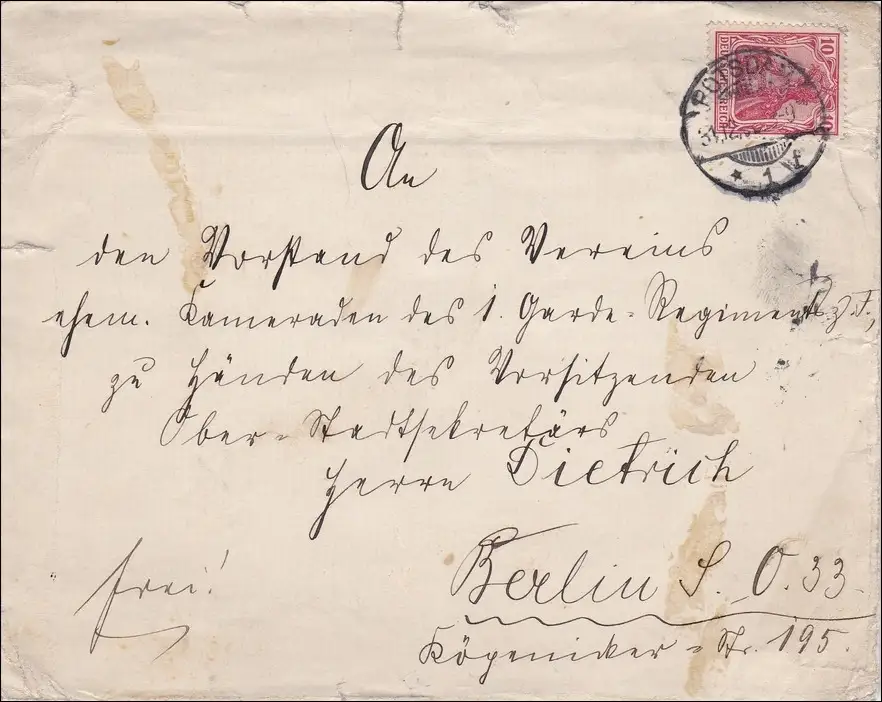 10
DEUTSCHES REICH
10
POTSDAM
31.12.
* 1 f
An
den Vorstand des Vereins
ehem. Kameraden des 1. Garde-Regiments z. F.,
zu Händen des Vorsitzenden
Ober-Stadtsekretärs
Herrn Dietrich
frei!
Berlin S. O. 33.
Köpenicker-Str. 195.